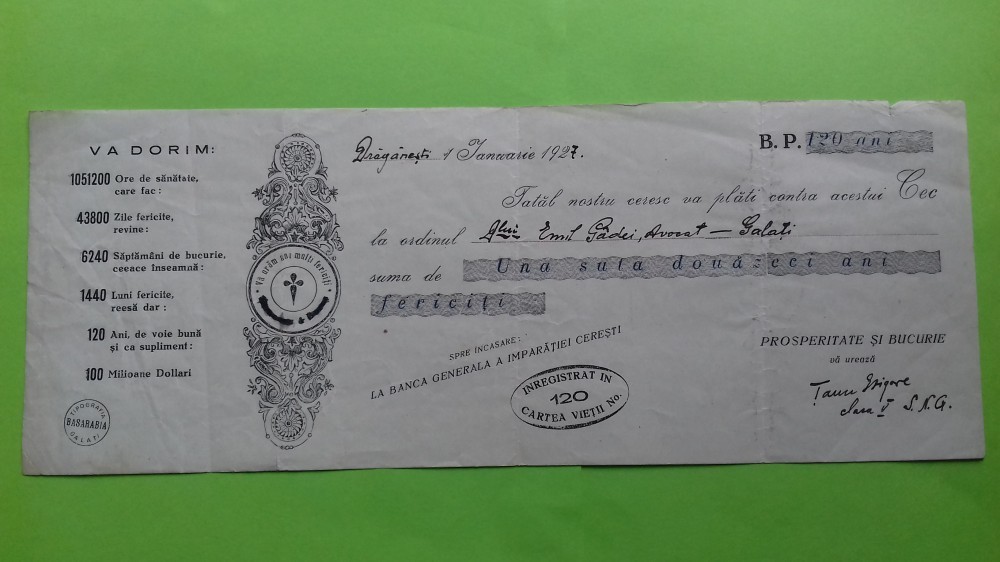 VA DORIM:
1051200 Ore de sănătate,
care fac:
43800 Zile fericite,
revine:
6240 Săptămâni de bucurie,
ceeace înseamnă:
1440 Luni fericite,
reesă dar:
120 Ani, de voie bună
și ca supliment:
100 Milioane Dollari
TIPOGRAFIA
BASARABIA
GALATI
Vă urăm ani mulți fericiți
Drăgănești 1 Ianuarie 1927.
B. P. 120 ani
Tatăl nostru ceresc va plăti contra acestui Cec
la ordinul Dlui Emil Gădei, Avocat — Galați
suma de Una suta douăzeci ani
fericiți
SPRE ÎNCASARE:
LA BANCA GENERALA A IMPARĂȚIEI CEREȘTI
INREGISTRAT IN
120
CARTEA VIEȚII No.
PROSPERITATE ȘI BUCURIE
vă urează
Grigore
V S.N.G.